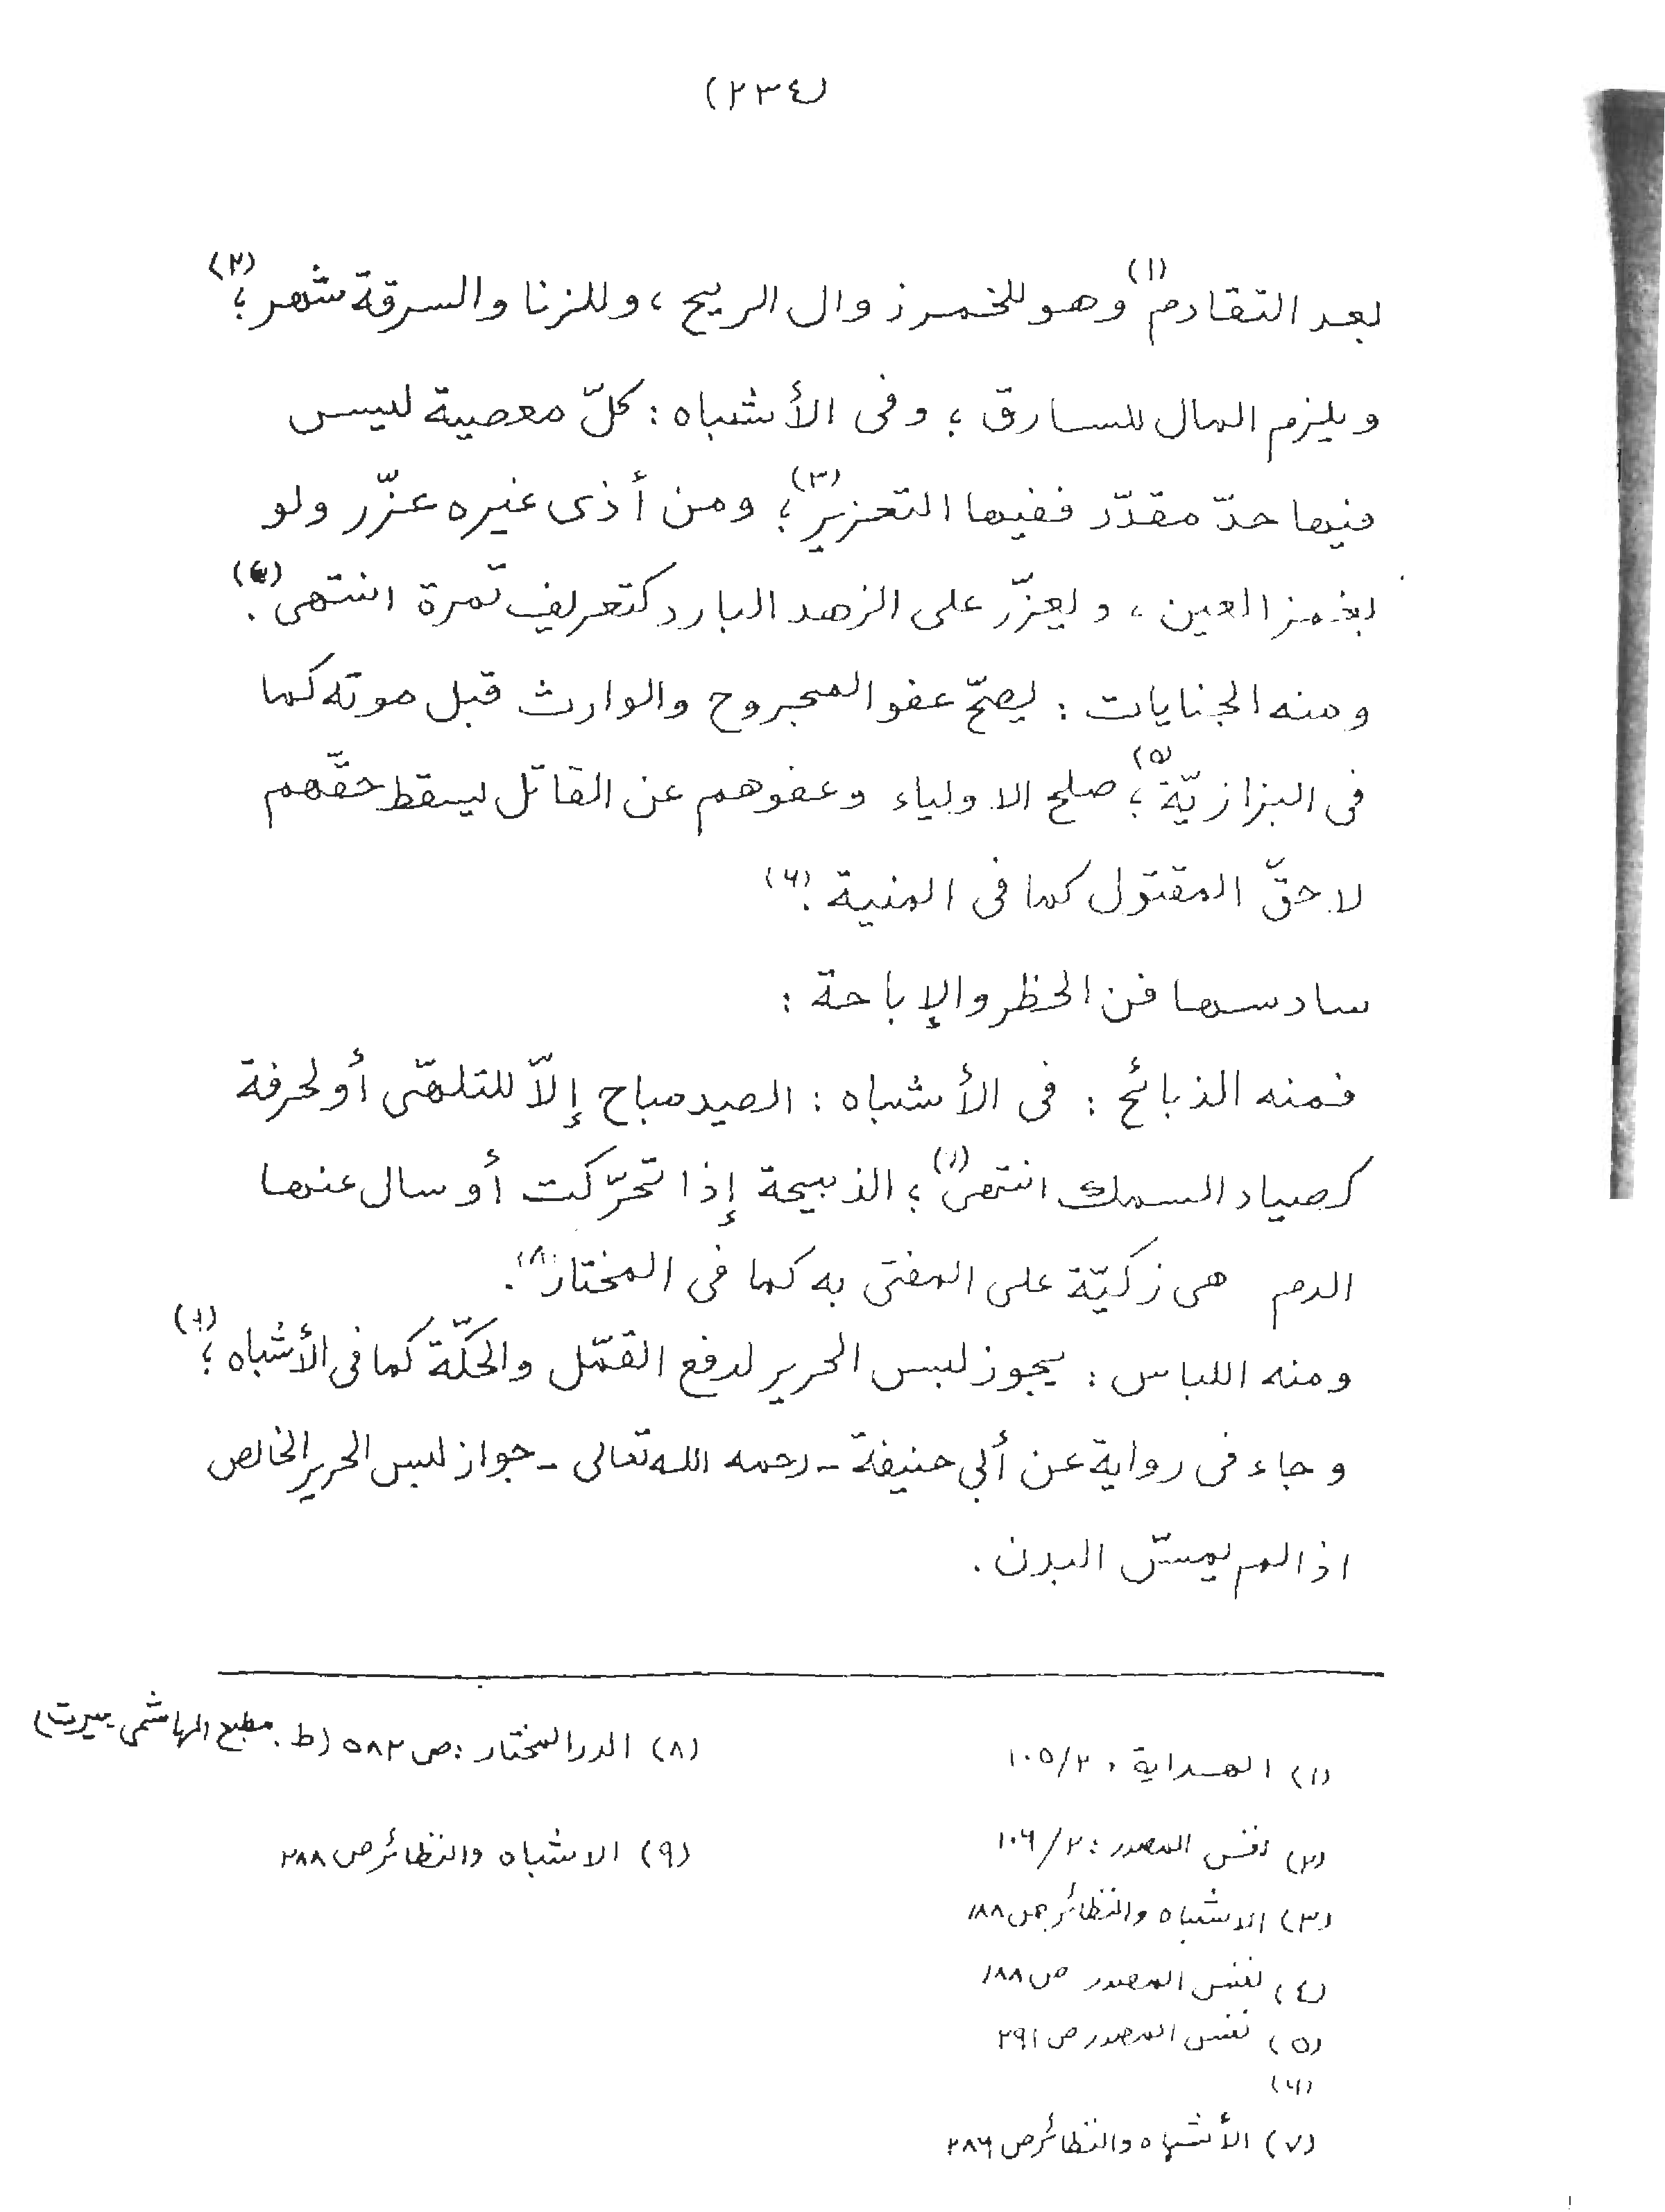 (٢٣٤)
بعد التقادم(١) وهو للخمر زوال الريح ، وللزنا والسرقة شهر ؛(٢)
ويلزم المال للسارق ؛ وفى الأشباه : كلّ معصية ليس
فيها حدّ مقدّر ففيها التعزير(٣)؛ ومن أذى غيره عزّر ولو
بغمز العين ، ويعزّر على الزهد البارد كتعريف تمرة انتهى(٤).
ومنه الجنايات : يصحّ عفو المجروح والوارث قبل موته كما
فى البزازيّة(٥)؛ صلح الاولياء وعفوهم عن القاتل يسقط حقّهم
لا حقّ المقتول كما فى المنية .(٦)
سادسها فن الحظر والإباحة :
فمنه الذبائح : فى الأشباه : الصيد مباح إلاّ للتلهّى أو لحرفة
كصياد السمك انتهى(٧)؛ الذبيحة إذا تحرّكت أو سال عنها
الدم هى زكيّة على المفتى به كما فى المختار(٨).
ومنه اللباس : يجوز لبس الحرير لدفع القمّل والحكّة كما فى الأشباه ؛(٩)
وجاء فى رواية عن أبي حنيفة - رحمه الله تعالى - جواز لبس الحرير الخالص
اذا لم يمسّ البدن .
(١) الهداية ، ١٠٥/٢
(٢) نفس المصدر : ١٠٦/٢
(٣) الاشباه والنظائر ص ١٨٨
(٤) نفس المصدر ص ١٨٨
(٥) نفس المصدر ص ٢٩١
(٦)
(٧) الأشباه والنظائر ص ٢٨٦
(٨) الدر المختار : ص ٥٨٢ (ط . مطبع الهاشمى ميرت)
(٩) الاشباه والنظائر ص ٢٨٨